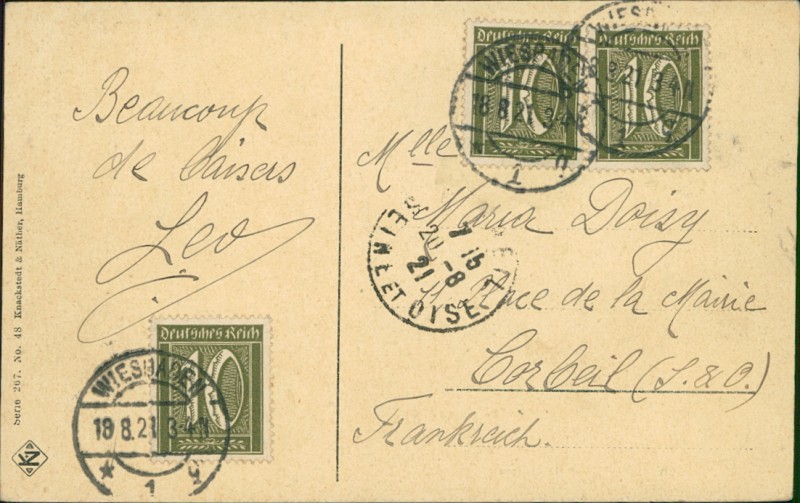 Beaucoup
de baisers
Leo
Serie 267. No. 48 Knackstedt & Näther, Hamburg
Deutsches Reich
10
WIESBADEN
18.8.21 3-4N
* 1 q
Deutsches Reich
10
Deutsches Reich
10
WIESBADEN
18.8.21 3-4N
1
WIESB
8.21 3-4N
SEINE ET OISE
7 15
20-8
21
Mlle
Maria Doisy
11 Place de la Mairie
Corbeil (S. & O.)
Frankreich.